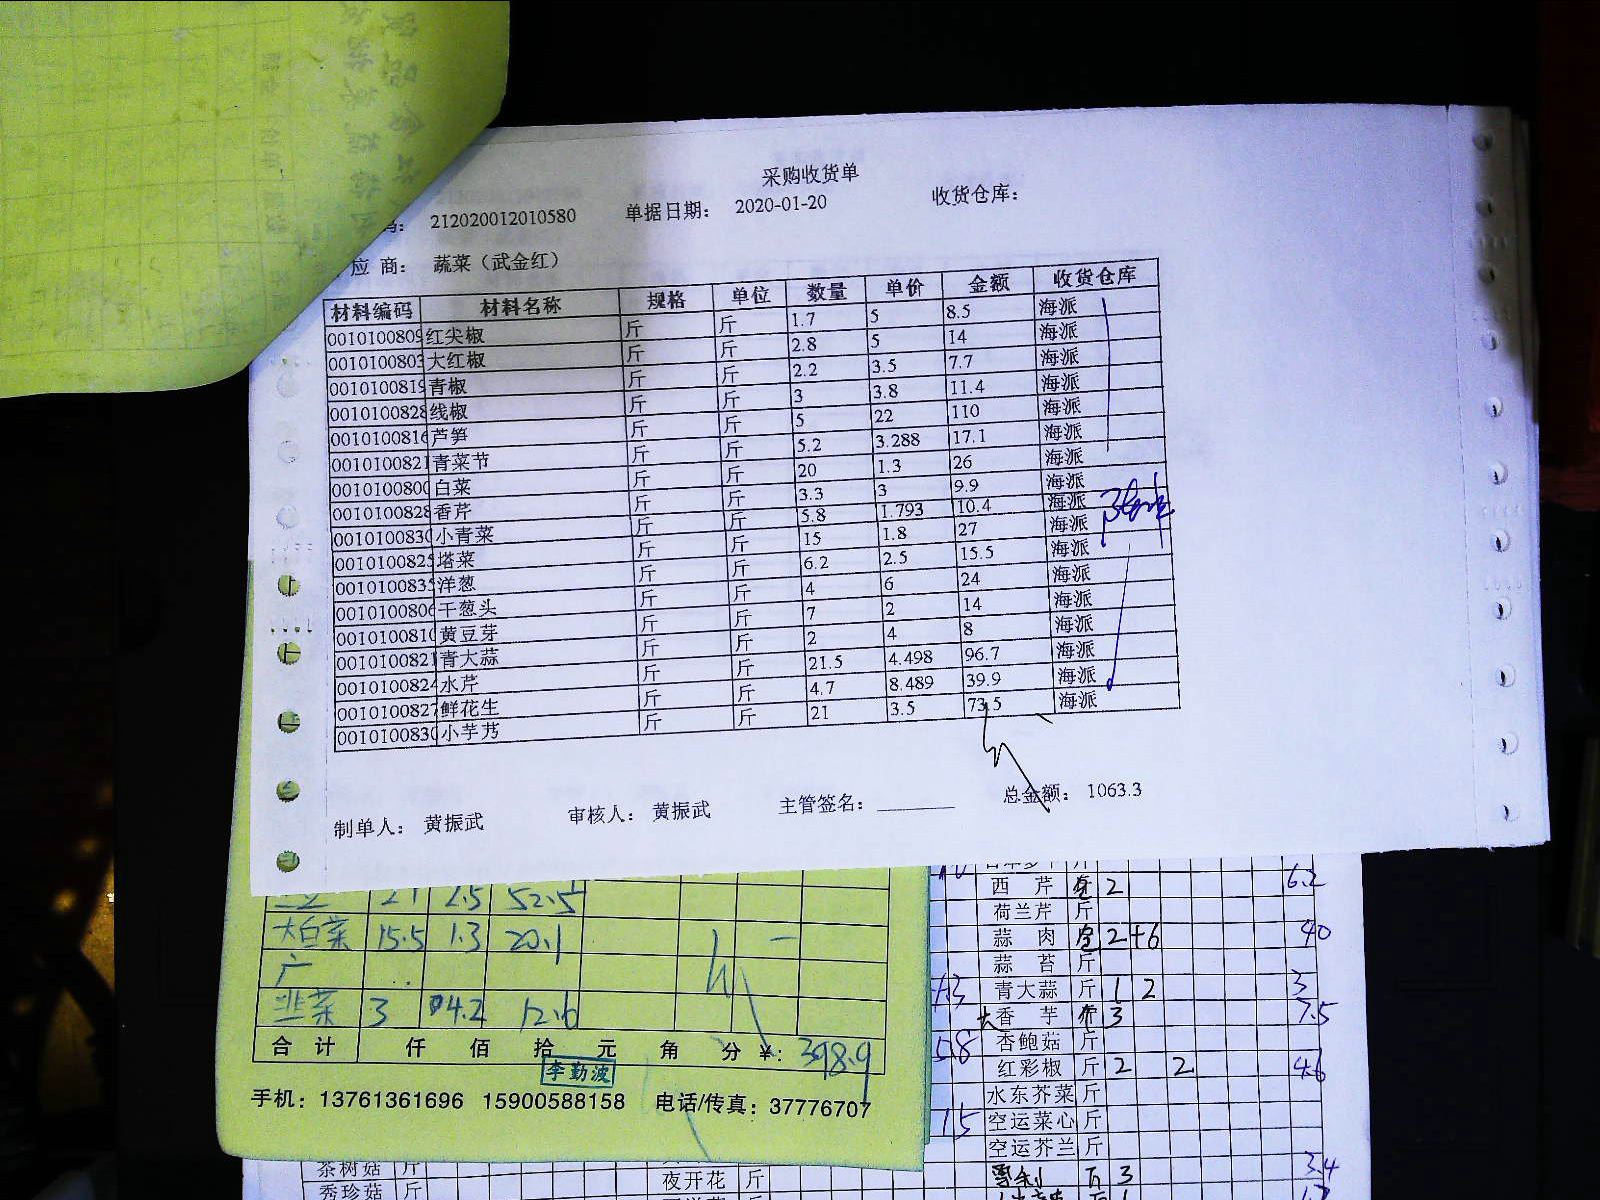 采购收货单
码： 212020012010580 单据日期： 2020-01-20 收货仓库：
应 商： 蔬菜（武金红）
材料编码 材料名称 规格 单位 数量 单价 金额 收货仓库
0010100809 红尖椒 斤 斤 1.7 5 8.5 海派
0010100803 大红椒 斤 斤 2.8 5 14 海派
0010100819 青椒 斤 斤 2.2 3.5 7.7 海派
0010100828 线椒 斤 斤 3 3.8 11.4 海派
0010100816 芦笋 斤 斤 5 22 110 海派
0010100821 青菜节 斤 斤 5.2 3.288 17.1 海派
0010100800 白菜 斤 斤 20 1.3 26 海派
0010100828 香芹 斤 斤 3.3 3 9.9 海派
0010100830 小青菜 斤 斤 5.8 1.793 10.4 海派
0010100825 塔菜 斤 斤 15 1.8 27 海派
0010100835 洋葱 斤 斤 6.2 2.5 15.5 海派
0010100806 干葱头 斤 斤 4 6 24 海派
0010100810 黄豆芽 斤 斤 7 2 14 海派
0010100821 青大蒜 斤 斤 2 4 8 海派
0010100824 水芹 斤 斤 21.5 4.498 96.7 海派
0010100827 鲜花生 斤 斤 4.7 8.489 39.9 海派
0010100830 小芋艿 斤 斤 21 3.5 73.5 海派
制单人： 黄振武 审核人： 黄振武 主管签名： 总金额： 1063.3
21 2.5 52.5
大白菜 15.5 1.3 20.1
韭菜 3 4.2 12.6
合 计 仟 佰 拾 元 角 分 ¥: 398.9
李勤波
手机：13761361696 15900588158 电话/传真：37776707
西 芹 2 6.2
荷兰芹 斤
蒜 肉 2+6 40
蒜 苔 斤
青大蒜 斤 1 2 3
大香 芋 3 7.5
香鲍菇 斤
红彩椒 斤 2 2 4.6
水东芥菜 斤
空运菜心 斤
空运芥兰 斤
3 3.4
茶树菇 斤
秀珍菇 斤
夜开花 斤